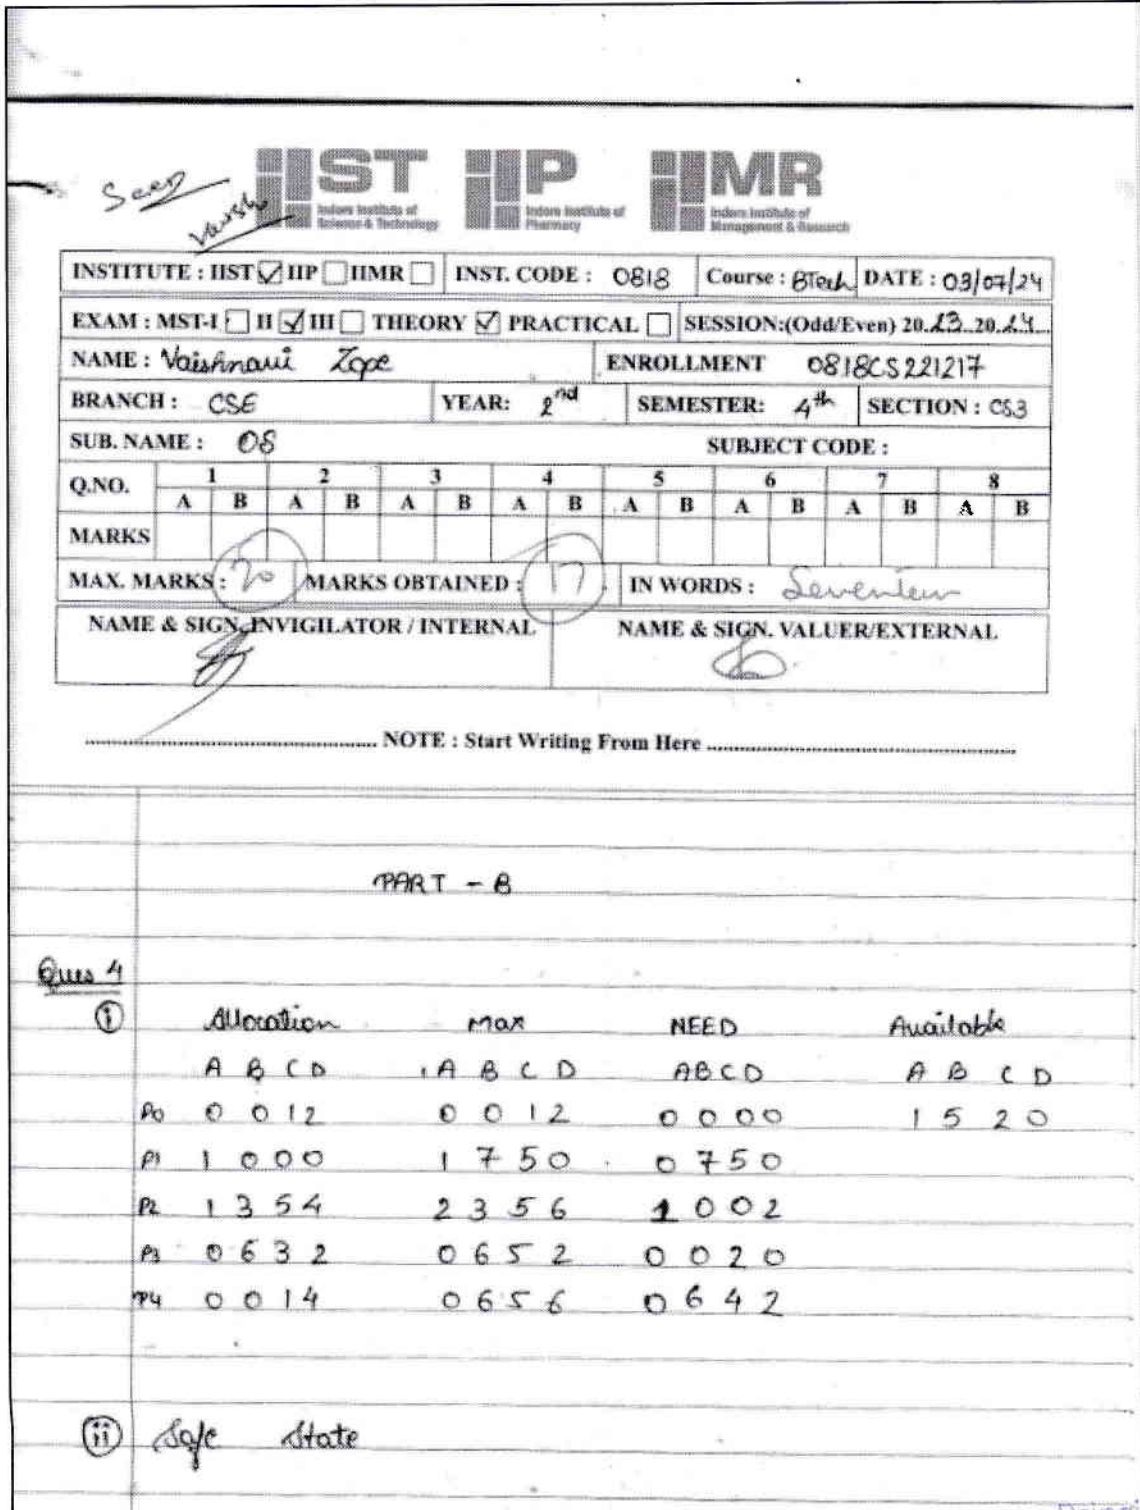 Seen
Varsh
IIST IIP IIMR
Indore Institute of Science & Technology
Indore Institute of Pharmacy
Indore Institute of Management & Research
INSTITUTE : IIST ☑ IIP ☐ IIMR ☐ INST. CODE : 0818 Course : BTech DATE : 03/07/24
EXAM : MST-I ☐ II ☑ III ☐ THEORY ☑ PRACTICAL ☐ SESSION:(Odd/Even) 20.23..20.24...
NAME : Vaishnavi Zope ENROLLMENT 0818CS221217
BRANCH : CSE YEAR: 2nd SEMESTER: 4th SECTION : CS3
SUB. NAME : OS SUBJECT CODE :
Q.NO. 1 2 3 4 5 6 7 8
A B A B A B A B A B A B A B A B
MARKS
MAX. MARKS : 20 MARKS OBTAINED : 17 IN WORDS : Seventeen
NAME & SIGN. INVIGILATOR / INTERNAL NAME & SIGN. VALUER/EXTERNAL
NOTE : Start Writing From Here
PART - B
Ques 4
i Allocation Max NEED Available
A B C D A B C D A B C D A B C D
P0 0 0 1 2 0 0 1 2 0 0 0 0 1 5 2 0
P1 1 0 0 0 1 7 5 0 0 7 5 0
P2 1 3 5 4 2 3 5 6 1 0 0 2
P3 0 6 3 2 0 6 5 2 0 0 2 0
P4 0 0 1 4 0 6 5 6 0 6 4 2
ii Safe State